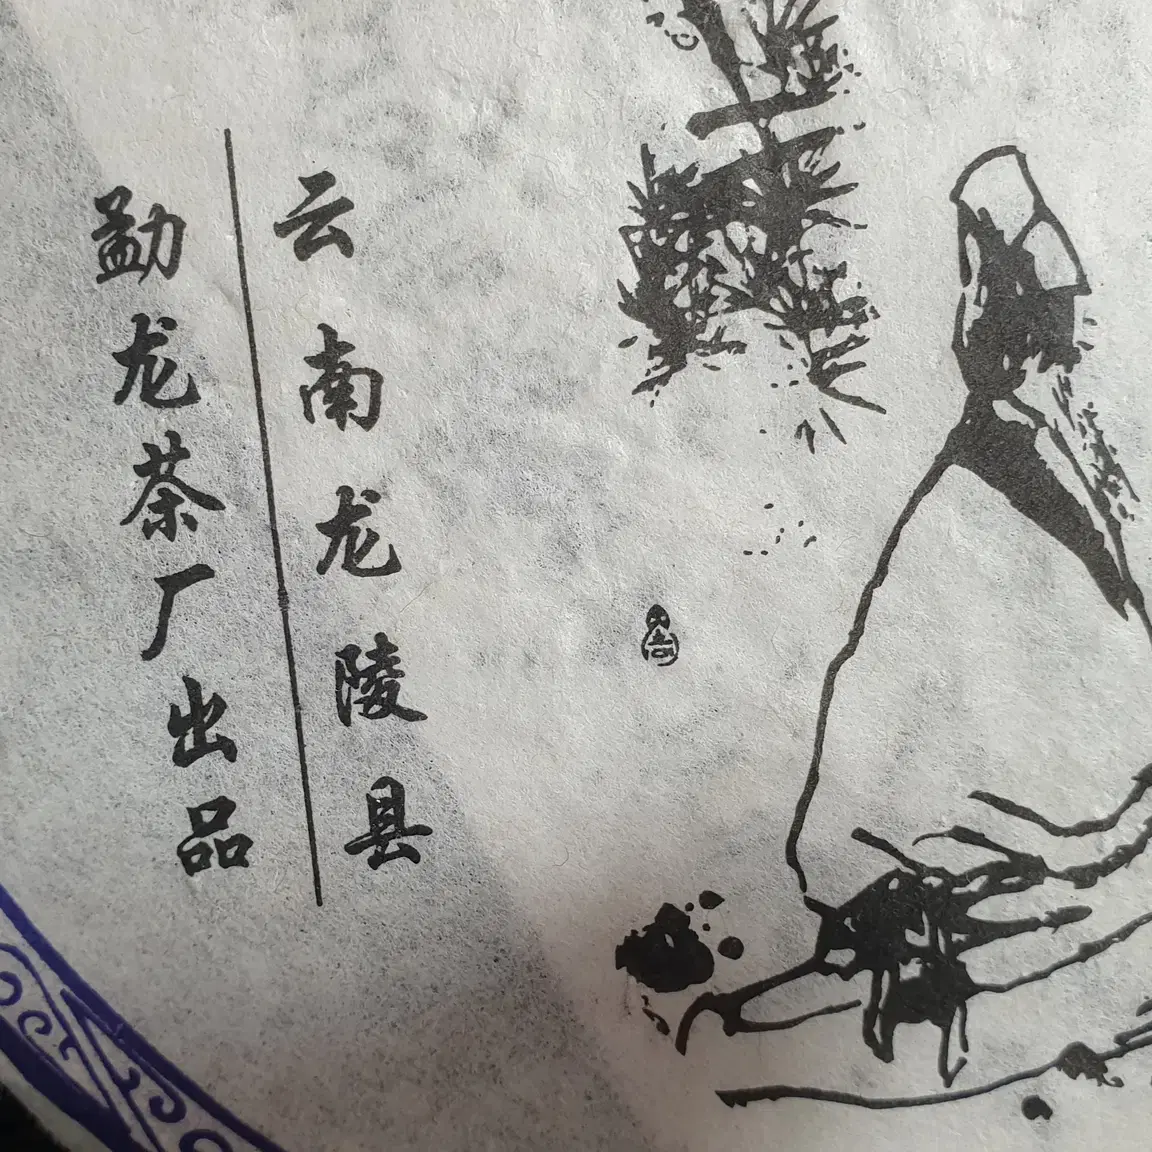 云南龙陵县
勐龙茶厂出品